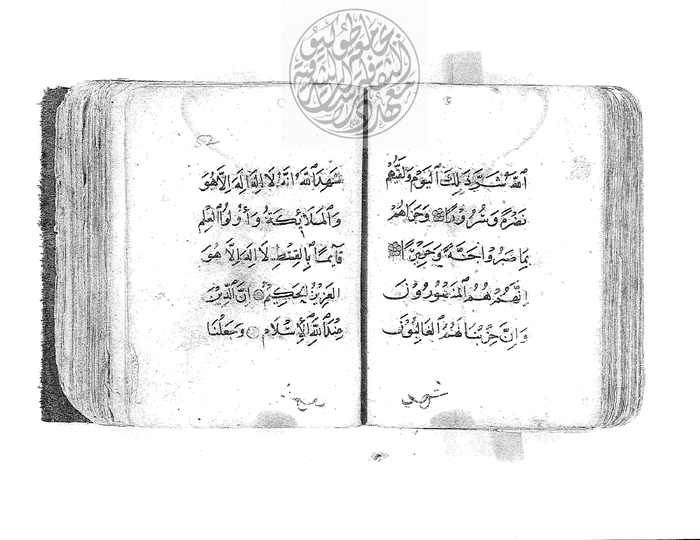 اللَّهُ شَرَّ ذَلِكَ الْيَوْمِ وَلَقَّاهُمْ
نَضْرَةً وَسُرُورًا وَجَزَاهُمْ
بِمَا صَبَرُوا جَنَّةً وَحَرِيرًا
إِنَّهُمْ لَهُمُ الْمَنْصُورُونَ
وَإِنَّ حِزْبَنَا لَهُمُ الْغَالِبُونَ
شهد
شَهِدَ اللَّهُ أَنَّهُ لَا إِلَهَ إِلَّا هُوَ
وَالْمَلَائِكَةُ وَأُولُوا الْعِلْمِ
قَائِمًا بِالْقِسْطِ لَا إِلَهَ إِلَّا هُوَ
الْعَزِيزُ الْحَكِيمُ إِنَّ الدِّينَ
عِنْدَ اللَّهِ الْإِسْلَامُ وَجَعَلْنَا